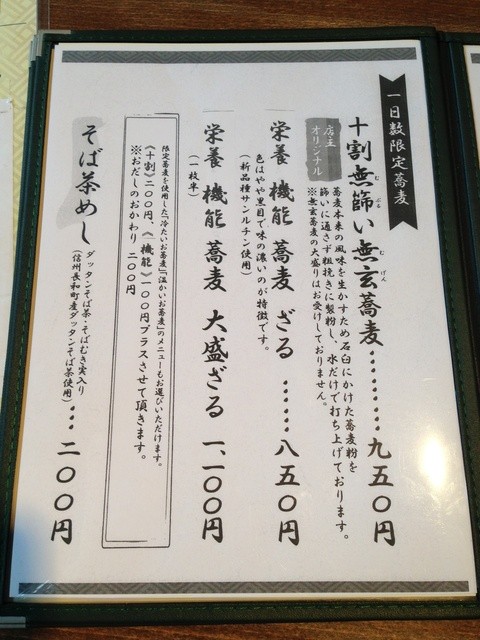 一日数限定蕎麦
十割無篩い無玄蕎麦………九五〇円
むぶる
むげん
店主
オリジナル
蕎麦本来の風味を生かすため石臼にかけた蕎麦粉を
篩いに通さず粗挽きに製粉し、水だけで打ち上げております。
※無玄蕎麦の大盛りはお受けしておりません。
栄養 機能 蕎麦 ざる ……八五〇円
色はやや黒目で味の濃いのが特徴です。
(新品種サンルチン使用)
栄養 機能 蕎麦 大盛ざる 一、一〇〇円
(一枚半)
限定蕎麦を使用した「冷たいお蕎麦」「温かいお蕎麦」のメニューもお選びいただけます。
《十割》二〇〇円、《機能》一〇〇円プラスさせて頂きます。
※おだしのおかわり 二〇〇円
そば茶めし
ダッタンそば茶・そばむき実入り
(信州長和町産ダッタンそば茶使用)… 二〇〇円